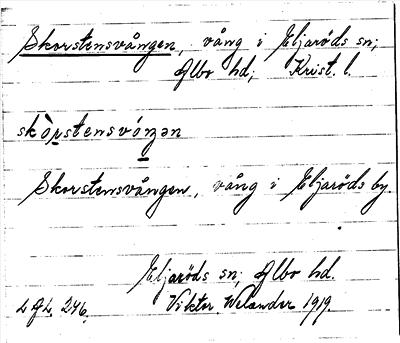 Skorstensvången, vång i Eljaröds sn;
Albo hd; Krist. l.
skòrstensvóŋən
Skorstensvången, vång i Eljaröds by.
Eljaröds sn; Albo hd.
L A L. 246. Viktor Welander 1919.